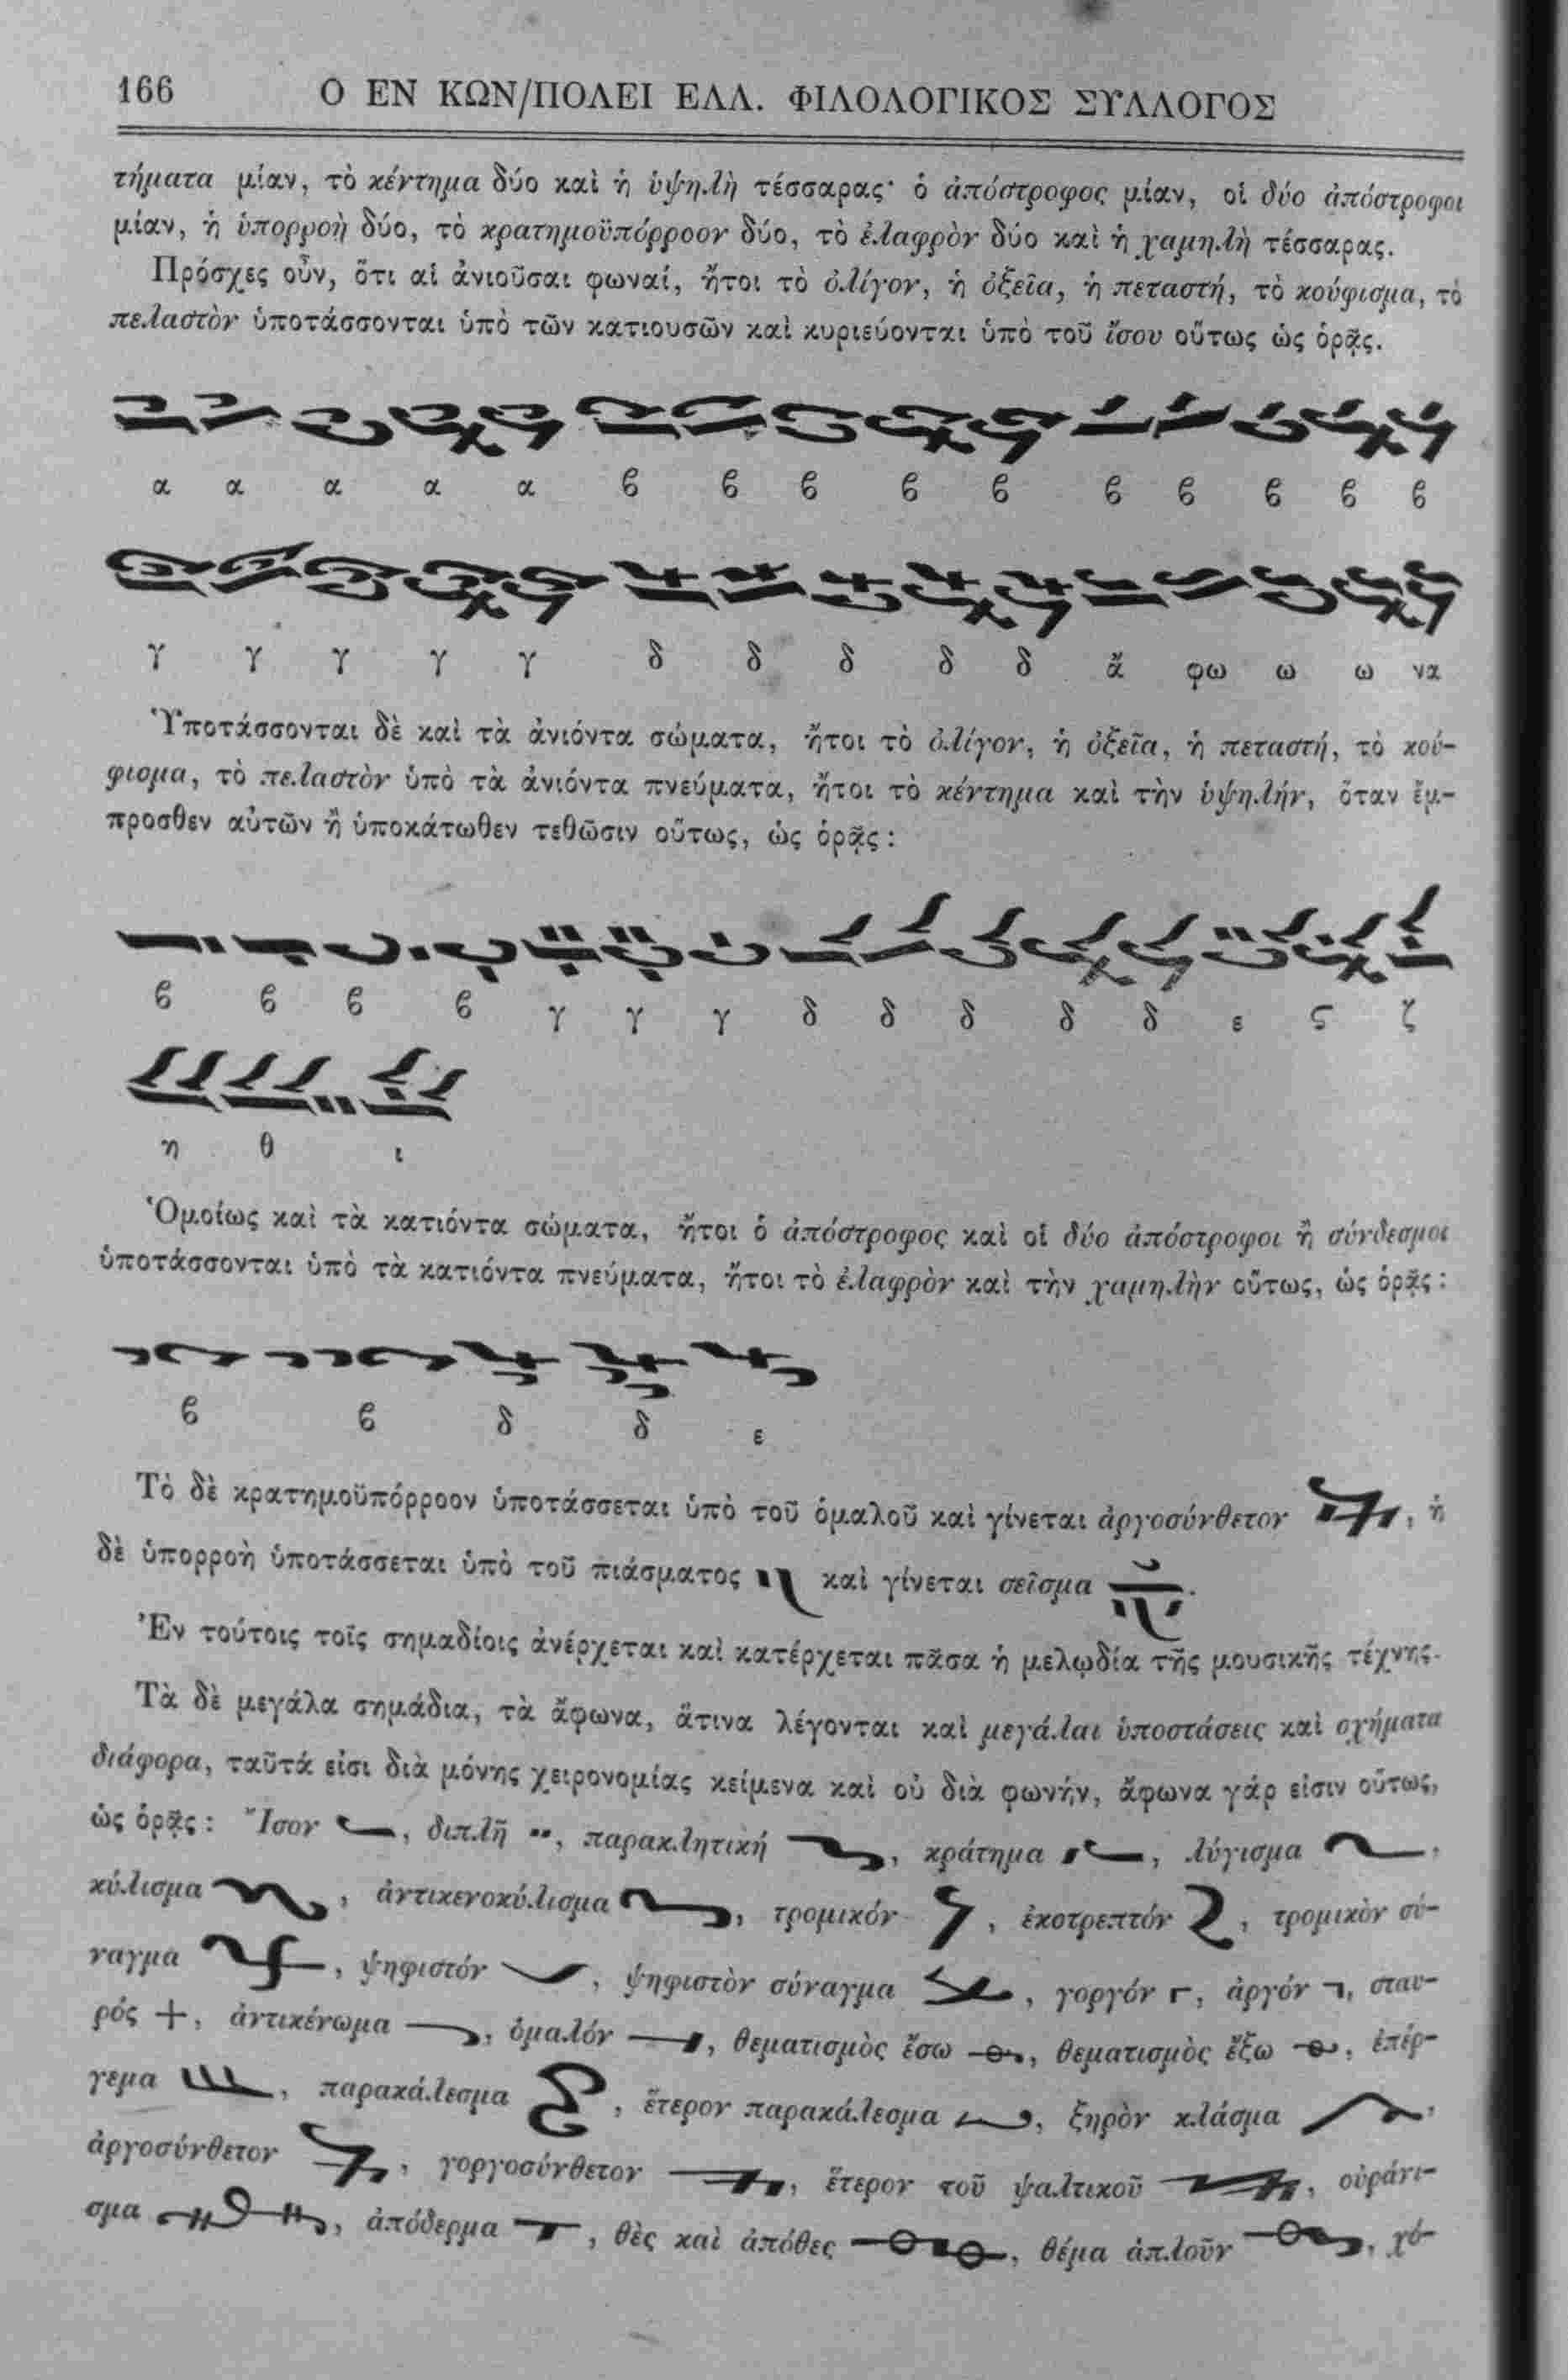 166 Ο ΕΝ ΚΩΝ/ΠΟΛΕΙ ΕΛΛ. ΦΙΛΟΛΟΓΙΚΟΣ ΣΥΛΛΟΓΟΣ
τήματα μίαν, τὸ κέντημα δύο καὶ ἡ ὑψηλὴ τέσσαρας· ὁ ἀπόστροφος μίαν, οἱ δύο ἀπόστροφοι
μίαν, ἡ ὑπορροὴ δύο, τὸ κρατημοϋπόρροον δύο, τὸ ἐλαφρὸν δύο καὶ ἡ χαμηλὴ τέσσαρας.
Πρόσχες οὖν, ὅτι αἱ ἀνιοῦσαι φωναί, ἤτοι τὸ ὀλίγον, ἡ ὀξεῖα, ἡ πεταστή, τὸ κούφισμα, τὸ
πελαστὸν ὑποτάσσονται ὑπὸ τῶν κατιουσῶν καὶ κυριεύονται ὑπὸ τοῦ ἴσου οὕτως ὡς ὁρᾷς.
α α α α α ϐ ϐ ϐ ϐ ϐ ϐ ϐ ϐ ϐ ϐ
γ γ γ γ γ δ δ δ δ δ ἄ φω ω ω να
Ὑποτάσσονται δὲ καὶ τὰ ἀνιόντα σώματα, ἤτοι τὸ ὀλίγον, ἡ ὀξεῖα, ἡ πεταστή, τὸ κού-
φισμα, τὸ πελαστὸν ὑπὸ τὰ ἀνιόντα πνεύματα, ἤτοι τὸ κέντημα καὶ τὴν ὑψηλήν, ὅταν ἔμ-
προσθεν αὐτῶν ἢ ὑποκάτωθεν τεθῶσιν οὕτως, ὡς ὁρᾷς :
ϐ ϐ ϐ ϐ γ γ γ δ δ δ δ δ ε ς ζ
η θ ι
Ὁμοίως καὶ τὰ κατιόντα σώματα, ἤτοι ὁ ἀπόστροφος καὶ οἱ δύο ἀπόστροφοι ἢ σύνδεσμοι
ὑποτάσσονται ὑπὸ τὰ κατιόντα πνεύματα, ἤτοι τὸ ἐλαφρὸν καὶ τὴν χαμηλὴν οὕτως, ὡς ὁρᾷς :
ϐ ϐ δ δ ε
Τὸ δὲ κρατημοϋπόρροον ὑποτάσσεται ὑπὸ τοῦ ὁμαλοῦ καὶ γίνεται ἀργοσύνθετον , ἡ
δὲ ὑπορροὴ ὑποτάσσεται ὑπὸ τοῦ πιάσματος καὶ γίνεται σεῖσμα .
Ἐν τούτοις τοῖς σημαδίοις ἀνέρχεται καὶ κατέρχεται πᾶσα ἡ μελῳδία τῆς μουσικῆς τέχνης.
Τὰ δὲ μεγάλα σημάδια, τὰ ἄφωνα, ἅτινα λέγονται καὶ μεγάλαι ὑποστάσεις καὶ σχήματα
διάφορα, ταῦτά εἰσι διὰ μόνης χειρονομίας κείμενα καὶ οὐ διὰ φωνήν, ἄφωνα γάρ εἰσιν οὕτως,
ὡς ὁρᾷς : Ἴσον , διπλῆ , παρακλητική , κράτημα , λύγισμα ,
κύλισμα , ἀντικενοκύλισμα , τρομικόν , ἐκστρεπτόν , τρομικὸν σύ-
ναγμα , ψηφιστόν , ψηφιστὸν σύναγμα , γοργόν , ἀργόν , σταυ-
ρός +, ἀντικένωμα , ὁμαλόν , θεματισμὸς ἔσω , θεματισμὸς ἔξω , ἐπέρ-
γεμα , παρακάλεσμα , ἕτερον παρακάλεσμα , ξηρὸν κλάσμα ,
ἀργοσύνθετον , γοργοσύνθετον , ἕτερον τοῦ ψαλτικοῦ , οὐράνι-
σμα , ἀπόδερμα , θὲς καὶ ἀπόθες , θέμα ἁπλοῦν , χό-